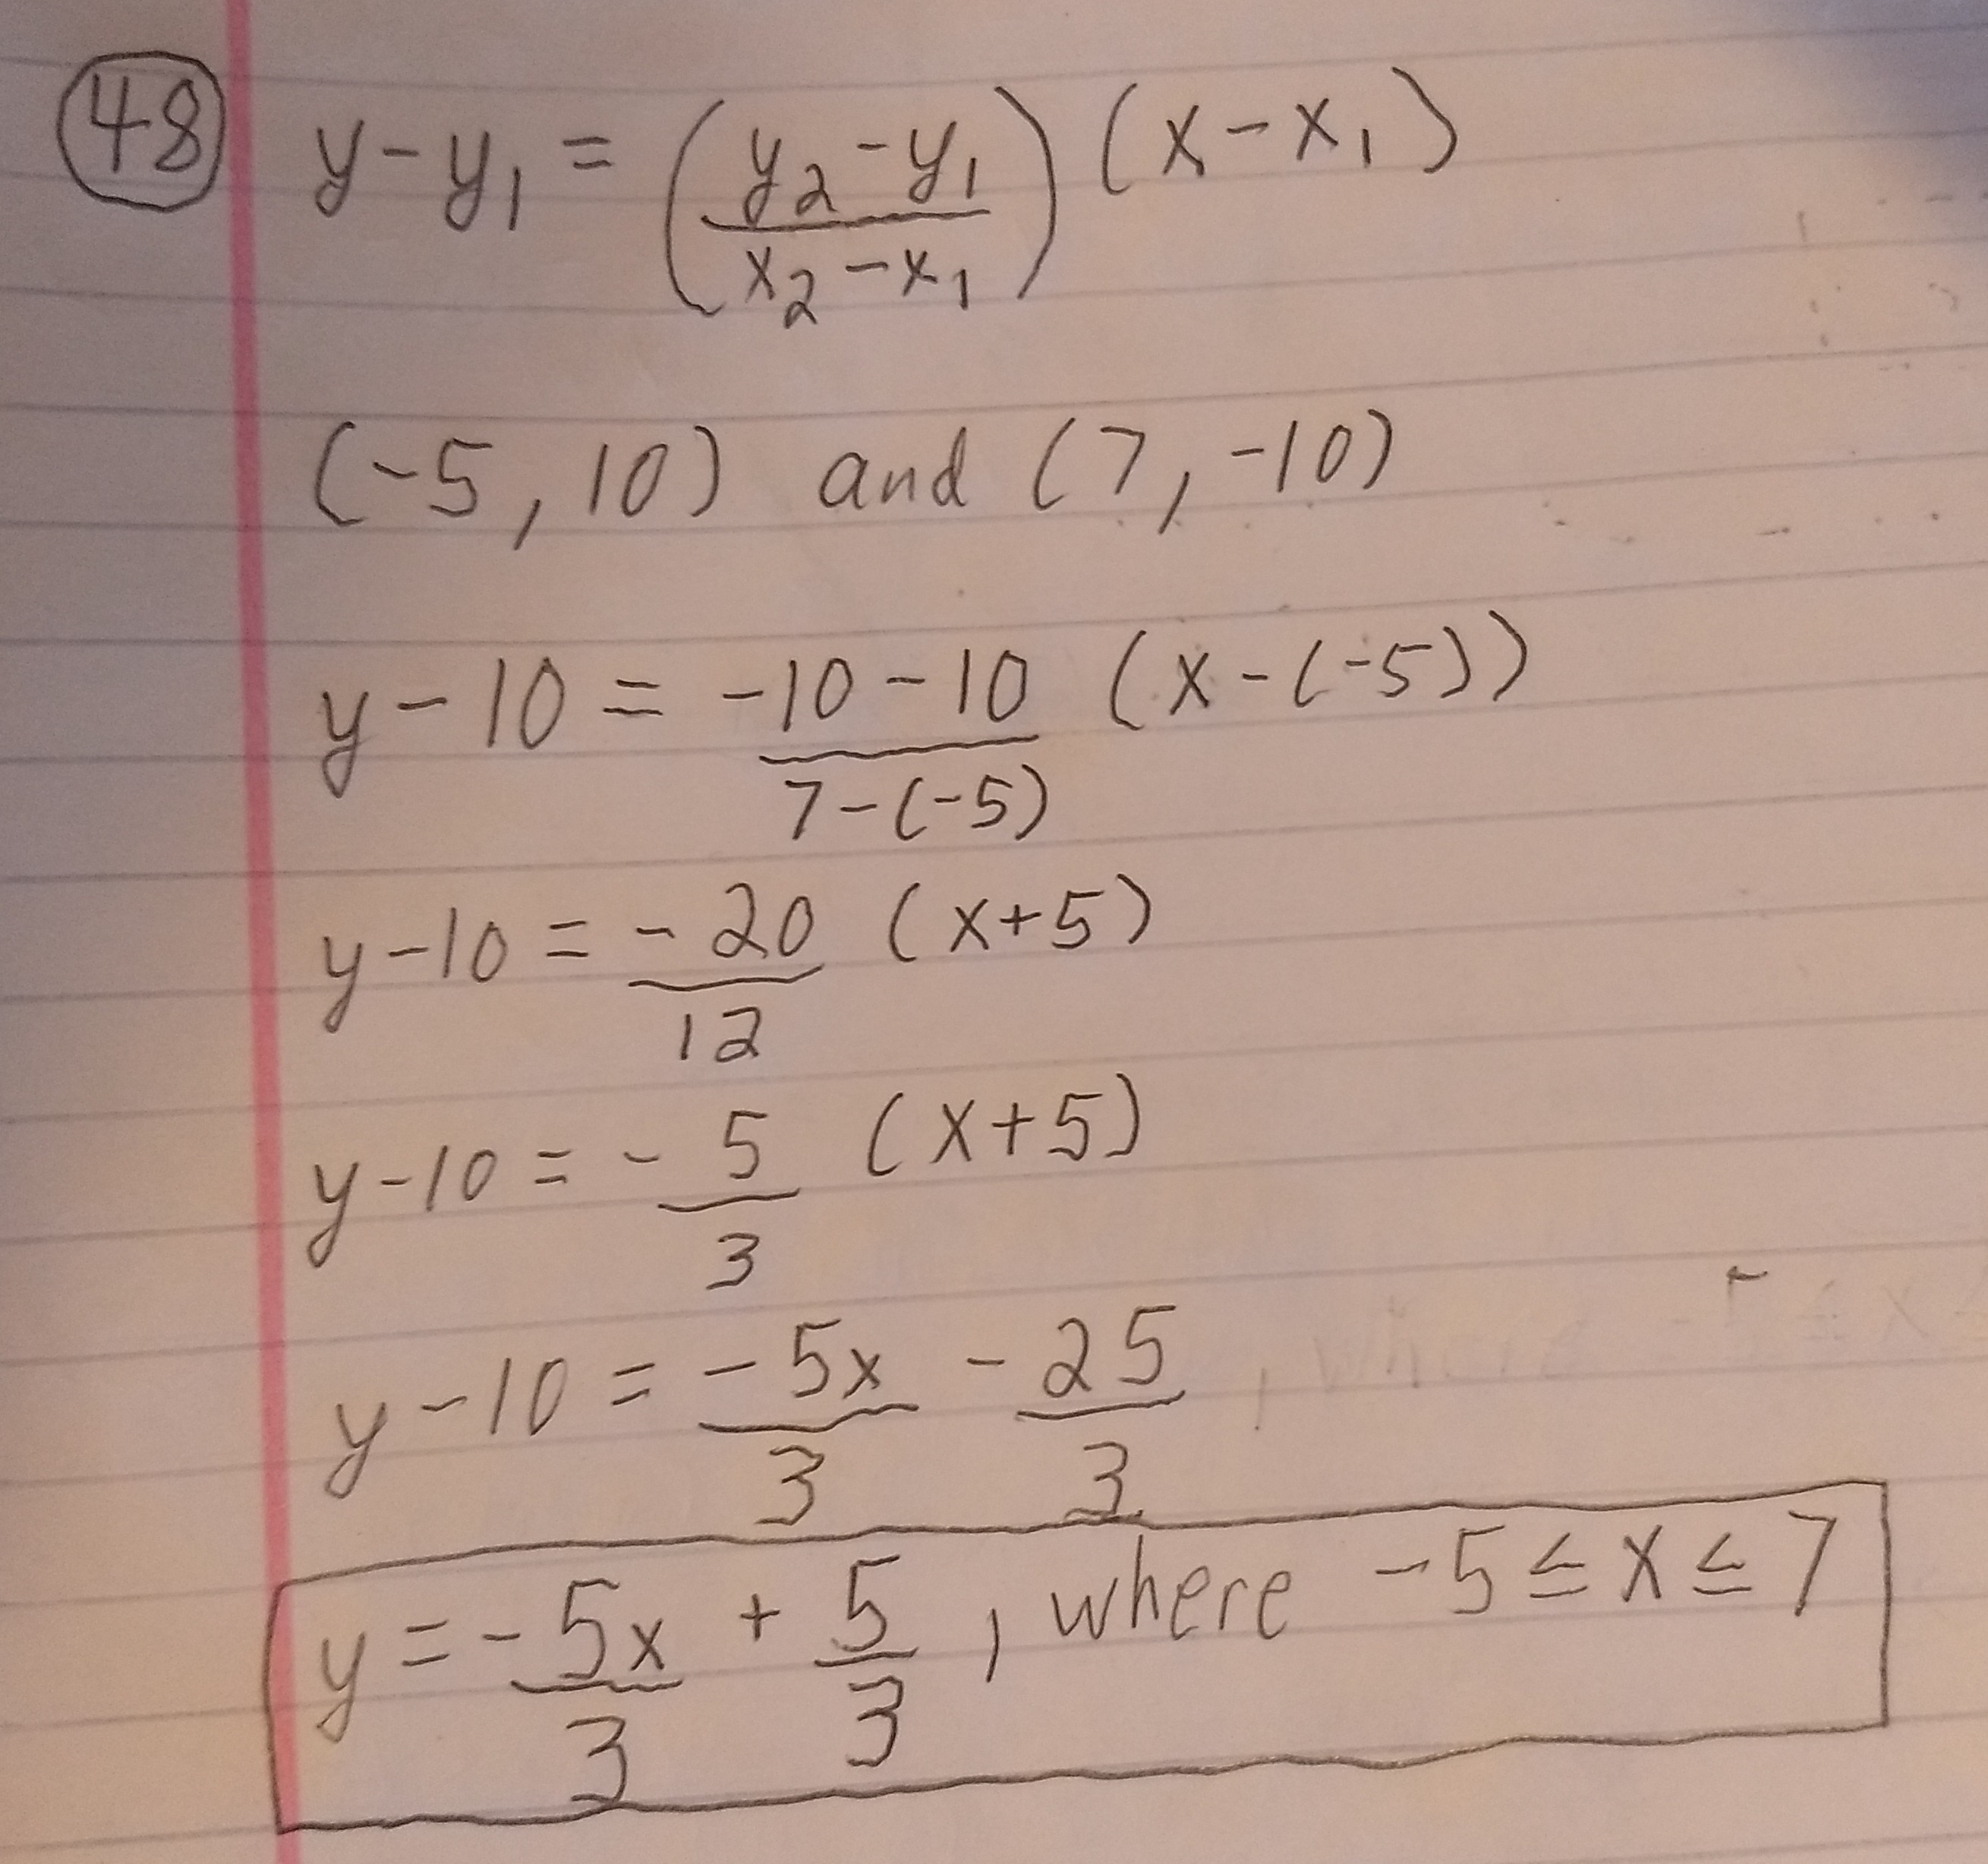 48 y - y₁ = ((y₂ - y₁)/(x₂ - x₁)) (x - x₁)
(-5, 10) and (7, -10)
y - 10 = (-10 - 10)/(7 - (-5)) (x - (-5))
y - 10 = -20/12 (x + 5)
y - 10 = -5/3 (x + 5)
y - 10 = -5x/3 - 25/3
y = -5x/3 + 5/3, where -5 ≤ x ≤ 7